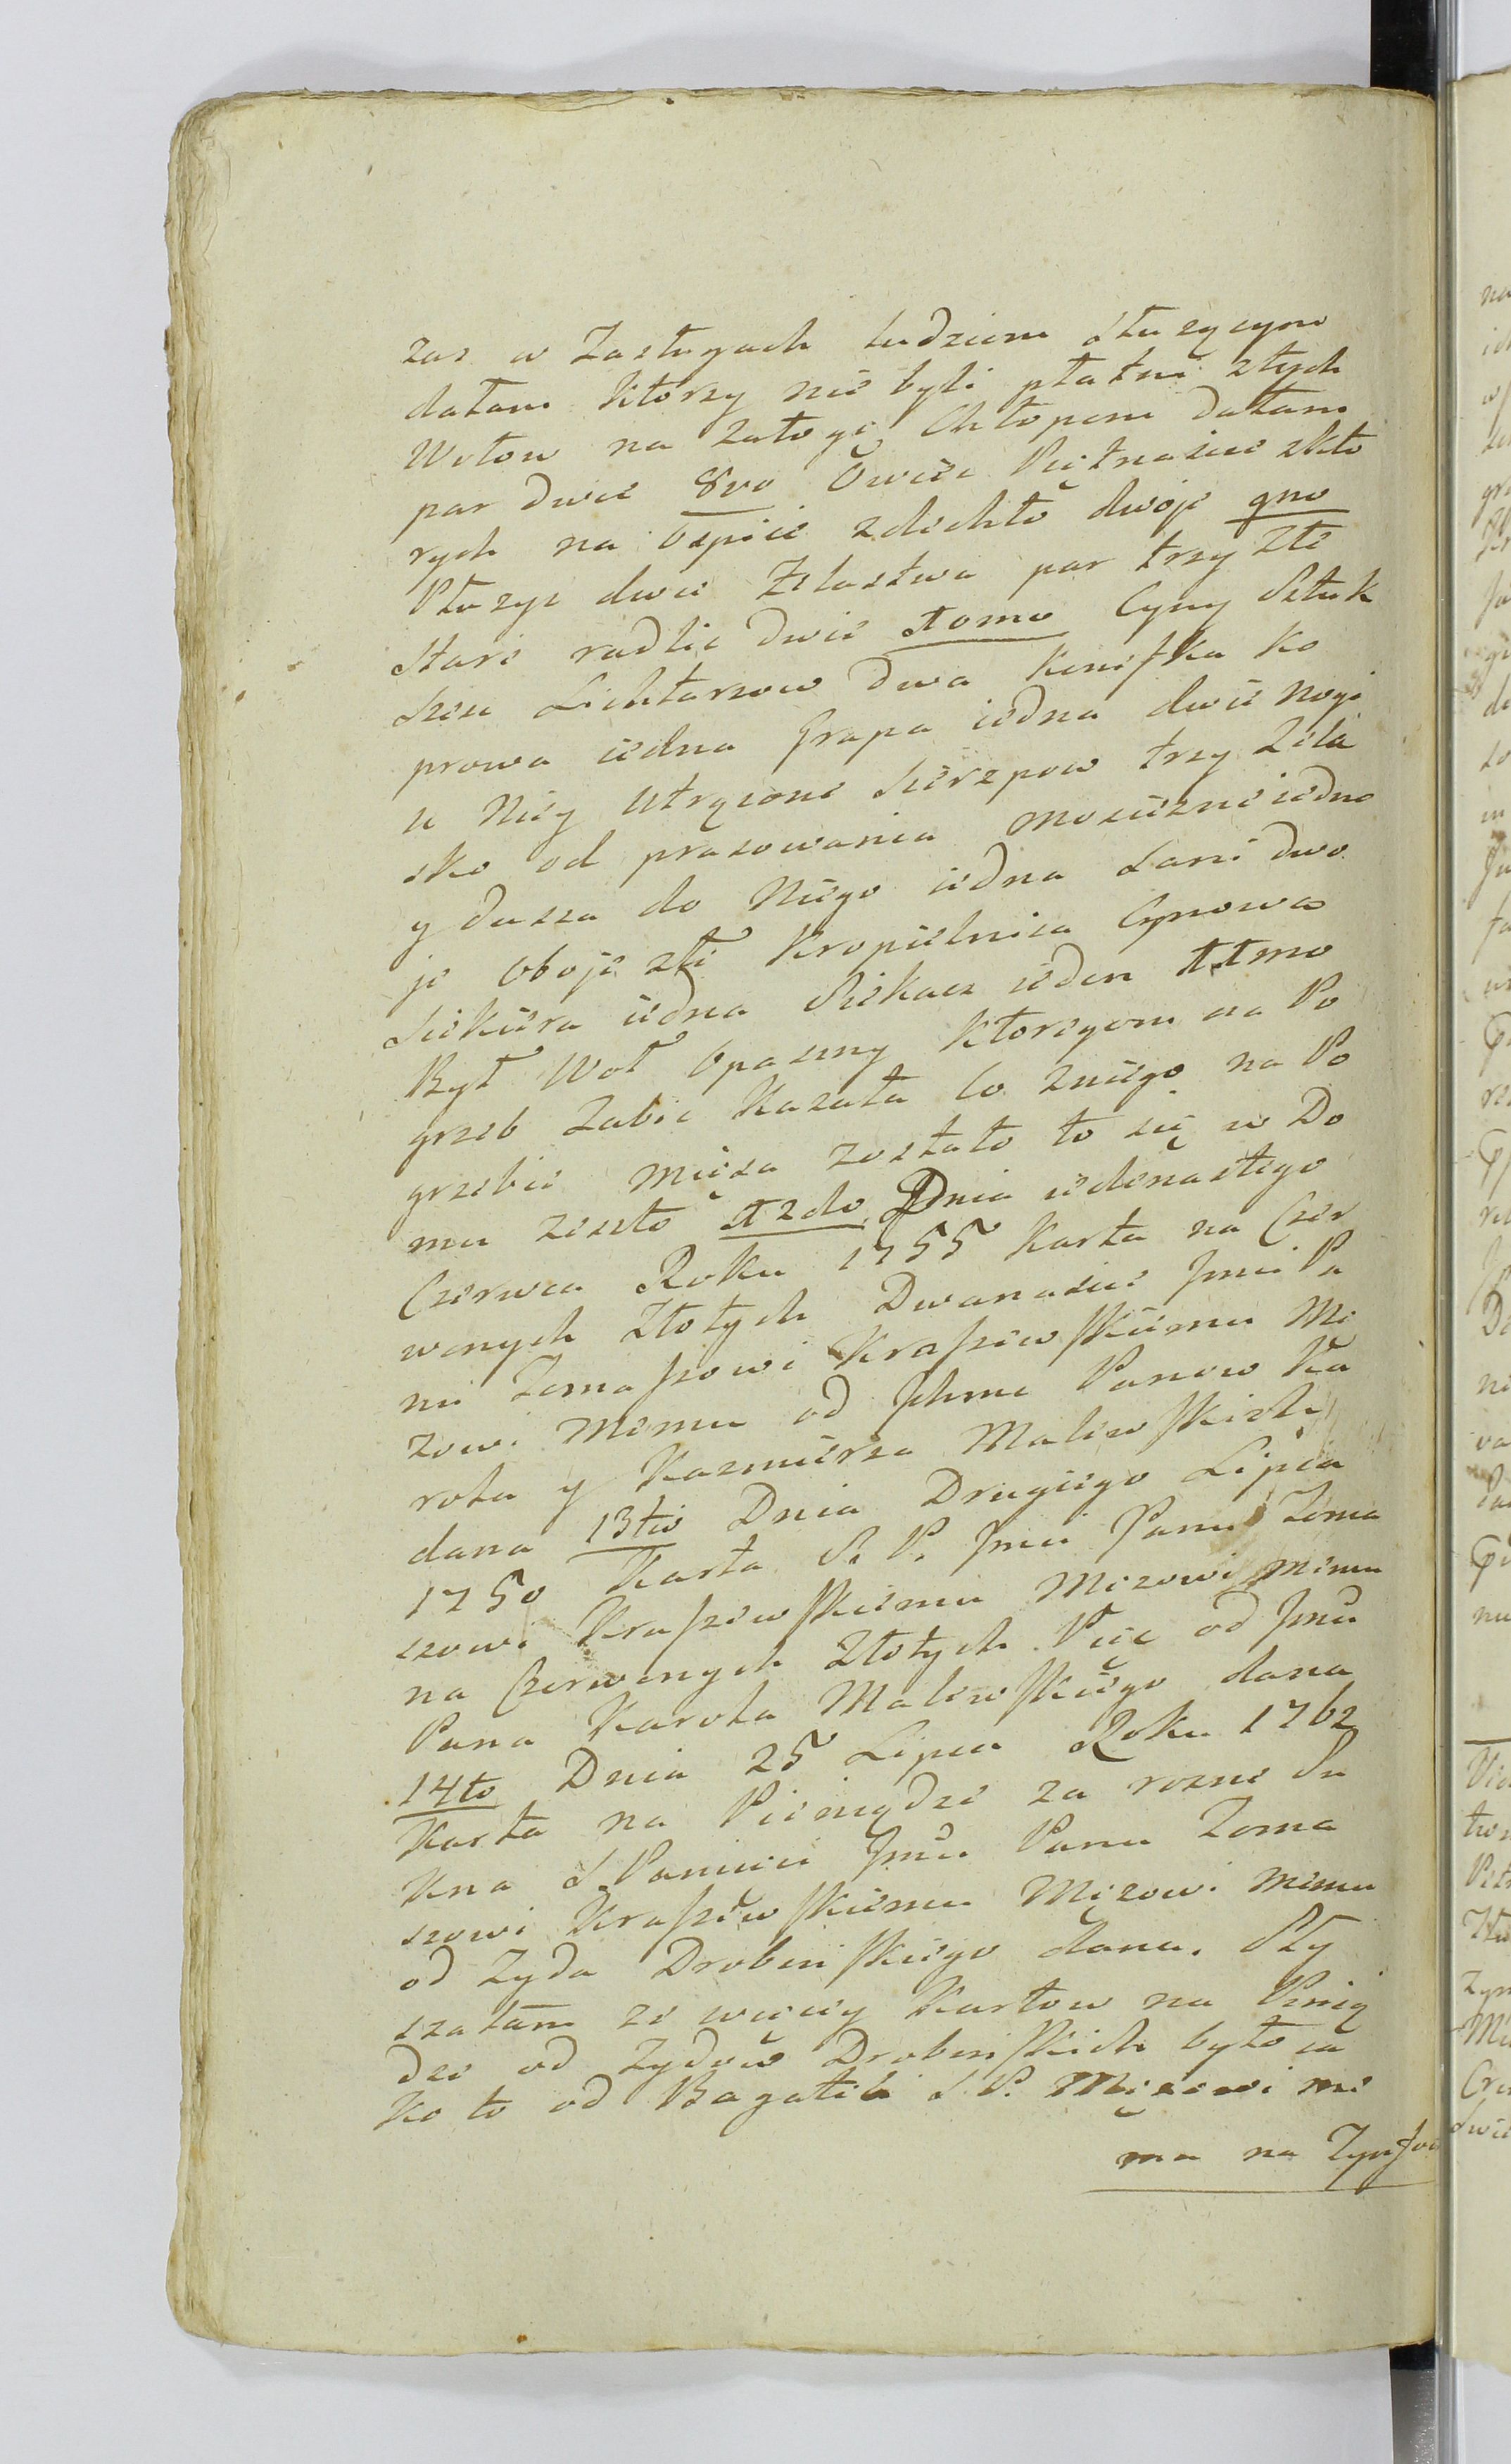 zas w Zasługach ludziom słuzącym
dałam Ktorzy nie byli płatni złych
Wołow na załogę Chłopom dałam
par dwie 8vo Owiec Piętnascie zkto
rych na Ospice zdechło dwoje 9no
Płuzyc dwie Zelastwa par trzy złe
stare radlic dwie 10mo Cyny Sztuk
szesc Lichtarzow dwa konefka ko
prowa iedna Grapa iedna dwie nogi
u Niey utrącone sierzpow trzy Zela
sko od prasowania mosiezne iedno
y dusza do Niego iedna Sani dwo
je oboje złe Kropielnica Cynowa
siekiera iedna Siekacz ieden 11mo
Był Woł Opasny Ktoregom na Po
grzeb Zabic Kazała Co zniego na Po
grzebie miesa zostało to się w Do
mu zeszło 12do Dnia iedenastego
Czerwca Roku 1755 Karta na Czer
wonych Złotych Dwanascie Jmci Pa
nu Tomaszowi Kraszewskiemu Mę
zowi Memu od Jchmc Panow Ka
rola y Kazmierza Malewskich
dana 13tio Dnia Drugiego Lipca
1750 Karta S. P. Jmci Panu Toma
szowi Kraszewskiemu Mezowi memu
na Czerwonych Złotych Pięc od Jmci
Pana Karola Malewskiego dana
14to Dnia 25 Lipca Roku 1762
Karta na Pieniądze za rozne Su
kna S Pamięci Jmci Panu Toma
szowi Kraszewskiemu Męzowi memu
od Zyda Drobinskiego dana. Sły
szałam ze wiecey Kartow na Pinią
dze od Zydow Drobinskich było ia
ko to od Bagateli S P. Męzowi me
mu na